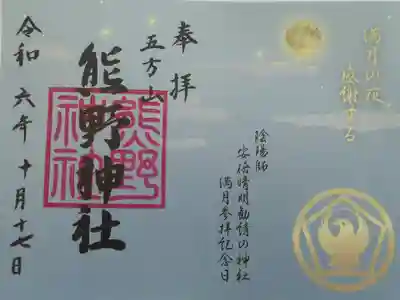 満月の夜
感謝する
奉拝
五方山
熊野神社
熊野神社
令和六年十月十七日
陰陽師
安倍晴明勧請の神社
満月参拝記念日